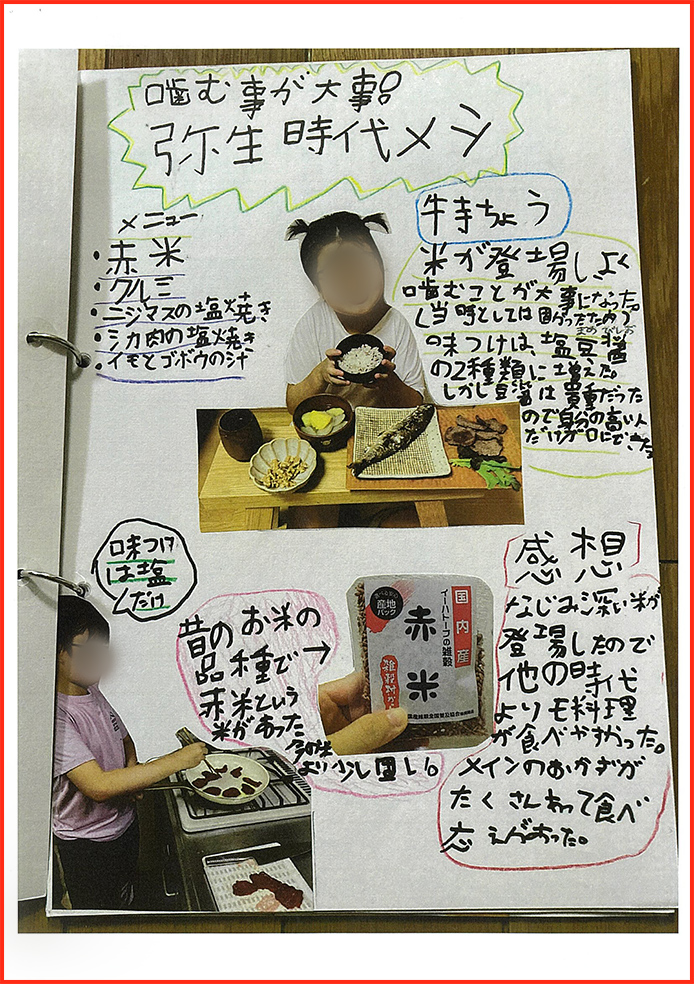 噛む事が大事!!
弥生時代メシ
メニュー
・赤米
・クルミ
・ニジマスの塩焼き
・シカ肉の塩焼き
・イモとゴボウの汁
特ちょう
米が登場しよく
噛むことが大事になった。
(当時としては固かったため)
まめびしお
味つけは、塩豆醤
の2種類に増えた。
しかし豆醤は貴重だった
ので身分の高い人
だけが口にできた
味つけ
は塩
だけ
昔のお米の
品種で→
赤米という
米があった
今の米
より少し固い。
食べきりの
産地
パック
国内産
イーハトーブの雑穀
赤米
雑穀
感想
なじみ深い米が
登場したので
他の時代
よりも料理
が食べやすかった。
メインのおかずが
たくさんあって食べ
応えがあった。